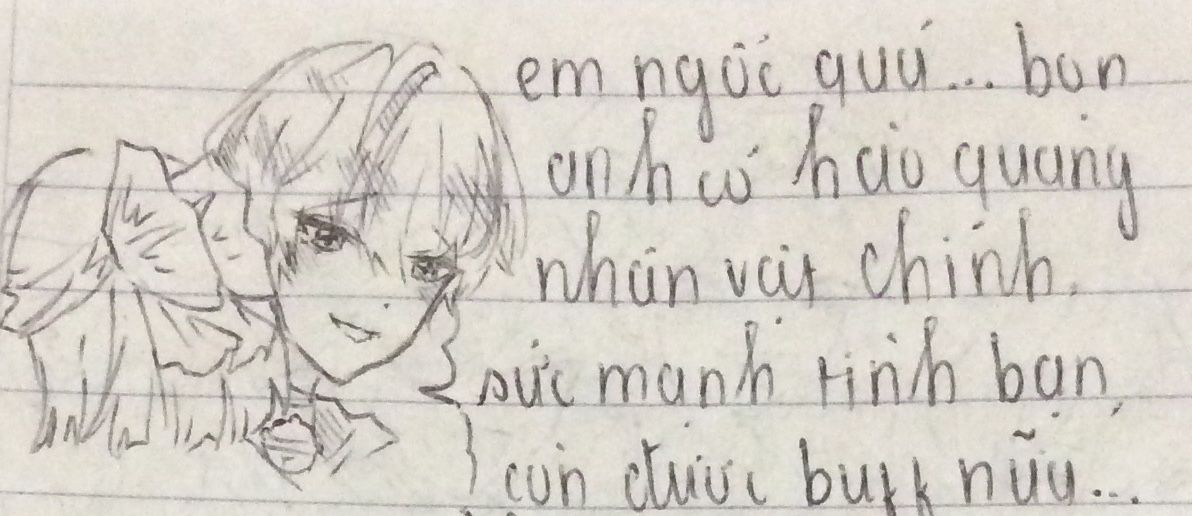 em ngốc quá... bọn
anh có hào quang
nhân vật chính.
sức mạnh tình bạn,
còn được buff nữa...